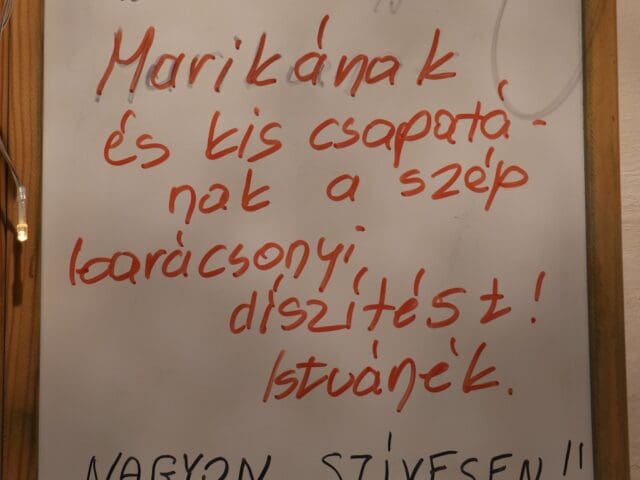 Marikának
és kis csapatá-
nak a szép
karácsonyi
díszítést!
Istvánék.
NAGYON SZÍVESEN!!